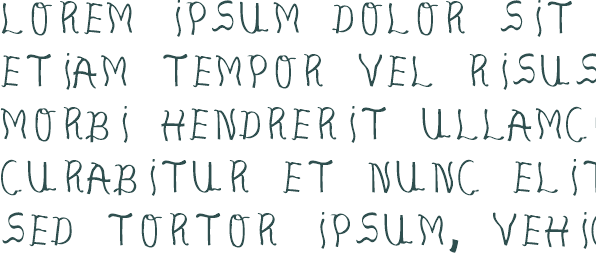 LOREM iPSUM DOLOR SiT
ETiAM TEMPOR VEL RiSUS
MORBi HENDRERiT ULLAMC
CURABiTUR ET NUNC ELiT
SED TORTOR iPSUM, VEHiC